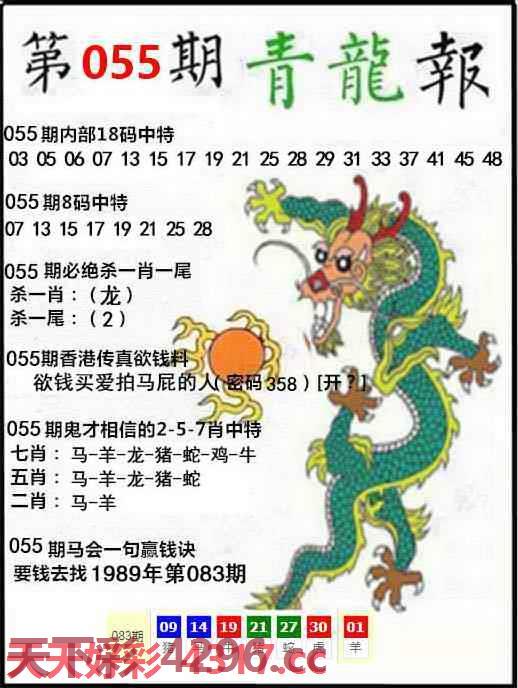 第055期青龍報
055期内部18码中特
03 05 06 07 13 15 17 19 21 25 28 29 31 33 37 41 45 48
055期8码中特
07 13 15 17 19 21 25 28
055期必绝杀一肖一尾
杀一肖：（龙）
杀一尾：（2）
055期香港传真欲钱料
欲钱买爱拍马屁的人（密码358）[开？]
055期鬼才相信的2-5-7肖中特
七肖：马-羊-龙-猪-蛇-鸡-牛
五肖：马-羊-龙-猪-蛇
二肖：马-羊
055期马会一句赢钱诀
要钱去找1989年第083期
083期 09 14 19 21 27 30 01
猪 蛇 虎 羊
天天好彩44396.cc